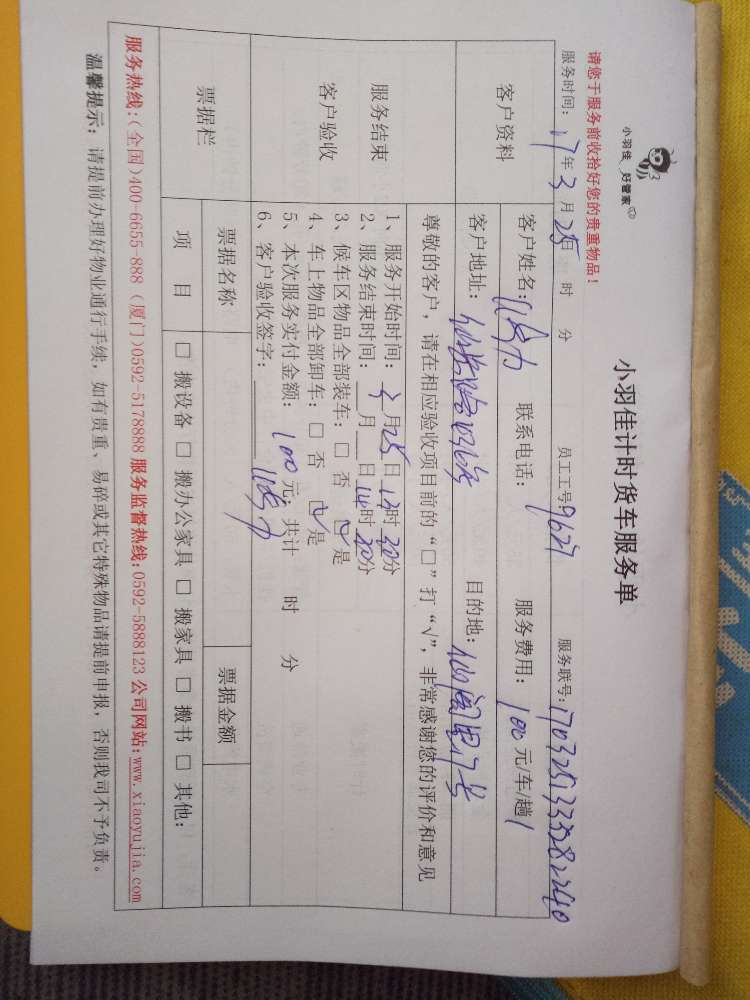 小羽佳 好管家
小羽佳计时货车服务单
请您于服务前收拾好您的贵重物品！
服务时间：17年3月25日 时 分 员工工号9627 服务联号：
客户资料
客户姓名： 联系电话： 服务费用：100元/车/趟
客户地址： 目的地：仙阁里7号
服务结束
客户验收
尊敬的客户，请在相应验收项目前的“□”打“√”，非常感谢您的评价和意见
1、服务开始时间：3月25日13时30分
2、服务结束时间：___月___日14时30分
3、候车区物品全部装车：□ 否 ☑ 是
4、车上物品全部卸车：□ 否 ☑ 是
5、本次服务实付金额：100元；共计 时 分
6、客户验收签字：
票据栏
票据名称 票据金额
项 目 □ 搬设备 □ 搬办公家具 □ 搬家具 □ 搬书 □ 其他：
服务热线：（全国）400-6655-888（厦门）0592-5178888 服务监督热线：0592-5888123 公司网站：www.xiaoyujia.com
温馨提示：请提前办理好物业通行手续，如有贵重、易碎或其它特殊物品请提前申报，否则我司不予负责。